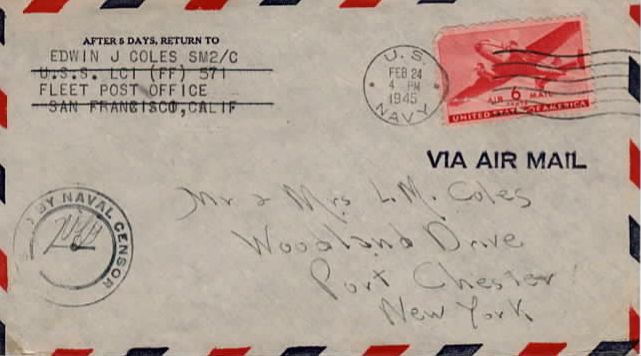 AFTER 5 DAYS, RETURN TO
EDWIN J COLES SM2/C
U.S.S. LCI (FF) 571
FLEET POST OFFICE
SAN FRANCISCO,CALIF
U.S.
FEB 24
4 PM
1945
NAVY
AIR 6 MAIL
CENTS
UNITED STATES OF AMERICA
VIA AIR MAIL
BY NAVAL CENSOR
Mr & Mrs L.M. Coles
Woodland Drive
Port Chester
New York